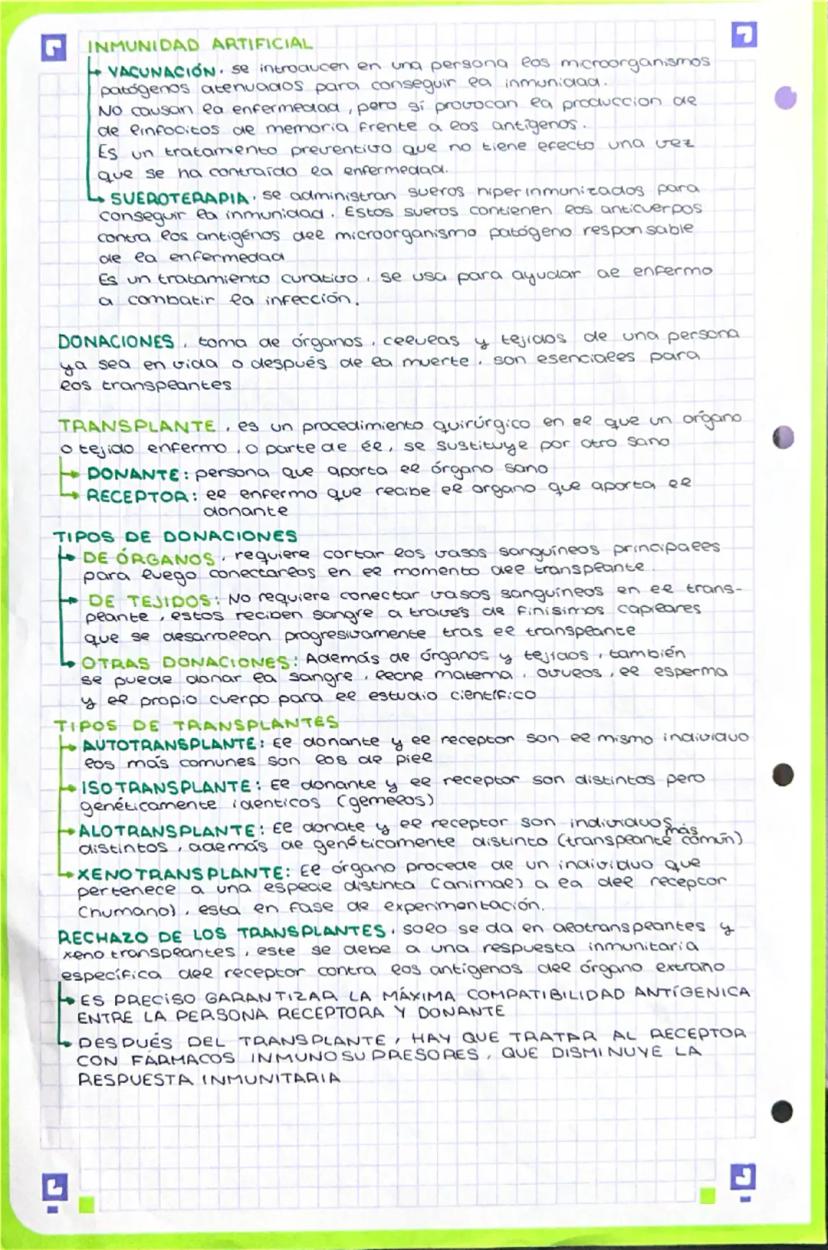 INMUNIDAD ARTIFICIAL
VACUNACIÓN. se introducen en una persona los microorganismos
patógenos atenuados para conseguir la inmunidad.
No causan la enfermedad, pero sí provocan la produccion de
de linfocitos de memoria frente a los antígenos.
Es un tratamiento preventivo que no tiene efecto una vez
que se ha contraído la enfermedad.
SUEROTERAPIA. se administran sueros hiperinmunizados para
conseguir la inmunidad. Estos sueros contienen los anticuerpos
contra los antigénos del microorganismo patógeno responsable
de la enfermedad
Es un tratamiento curativo, se usa para ayudar al enfermo
a combatir la infección.
DONACIONES, toma de órganos, células y tejidos de una persona
ya sea en vida o después de la muerte, son esenciales para
los transplantes
TRANSPLANTE, es un procedimiento quirúrgico en el que un organo
o tejido enfermo, o parte de él, se sustituye por otro sano
DONANTE: persona que aporta el órgano sano
RECEPTOR: el enfermo que recibe el organo que aporta el
donante
TIPOS DE DONACIONES
DE ÓRGANOS, requiere cortar los vasos sanguíneos principales
para luego conectarlos en el momento del transplante
DE TEJIDOS: No requiere conectar vasos sanguíneos en el trans-
plante, estos reciben sangre a través de finísimos capilares
que se desarrollan progresivamente tras el transplante
OTRAS DONACIONES: Además de órganos y tejidos, también
se puede donar la sangre, leche materna, óvulos, el esperma
y el propio cuerpo para el estudio científico
TIPOS DE TRANSPLANTES
AUTOTRANSPLANTE: El donante y el receptor son el mismo individuo
los más comunes son los de piel
ISOTRANSPLANTE: El donante y el receptor son distintos pero
genéticamente identicos (gemelos)
ALOTRANSPLANTE: El donate y el receptor son individuos
distintos, además de genéticamente distinto (transplante más común)
XENOTRANSPLANTE: El órgano procede de un individuo que
pertenece a una especie distinta (animal) a la del receptor
(humano), esta en fase de experimentación.
RECHAZO DE LOS TRANSPLANTES, solo se da en alotransplantes y
xenotransplantes, este se debe a una respuesta inmunitaria
específica del receptor contra los antígenos del órgano extraño
ES PRECISO GARANTIZAR LA MÁXIMA COMPATIBILIDAD ANTÍGENICA
ENTRE LA PERSONA RECEPTORA Y DONANTE
DESPUÉS DEL TRANSPLANTE, HAY QUE TRATAR AL RECEPTOR
CON FÁRMACOS INMUNOSUPRESORES, QUE DISMINUYE LA
RESPUESTA INMUNITARIA